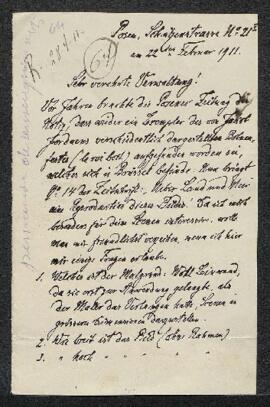 Posen, Schützenstrasse No 21 II
am 22ten Februar 1911.
64
Sehr verehrte Verwaltung!
Vor Jahren brachte die Posener Zeitung die
Notiz, dass wieder ein Exemplar des von Jakob
Jordaens verschiedentlich dargestellten Bohnen-
festes (le roi boit) aufgefunden worden sei,
welches sich in Brüssel befinde. Nun bringt
No 14 der Zeitschrift: Ueber Land und Meer
eine Reproduktion dieses Bildes. Da ich mich
besonders für dies interessiere, wollen
man mir freundlichst verzeihen, wenn ich hier
mir einige Fragen erlaube.
1. Welches ist der Malgrund. Wohl Leinwand,
da sie erst zur Anwendung gelangte, als
der Maler das Verlangen hatte, Scenen in
grösseren Dimensionen darzustellen.
2. Wie breit ist das Bild (ohne Rahmen)
3. " hoch " " " "